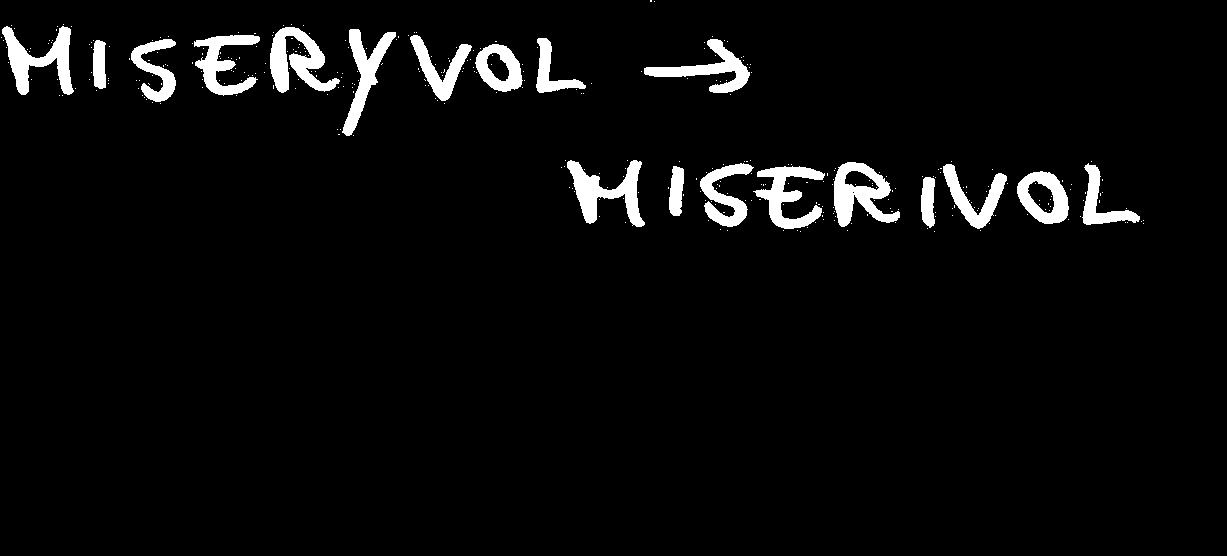 MISERYVOL →
MISERIVOL